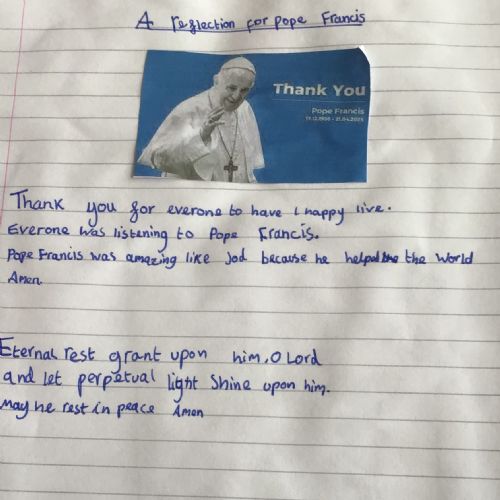 A reflection for Pope Francis
Thank You
Pope Francis
17.12.1936 - 21.04.2025
Thank you for everone to have a happy live.
Everone was listening to Pope Francis.
Pope Francis was amazing like Jod because he helped the world
Amen.
Eternal rest grant upon him, O Lord
and let perpetual light shine upon him.
May he rest in peace Amen